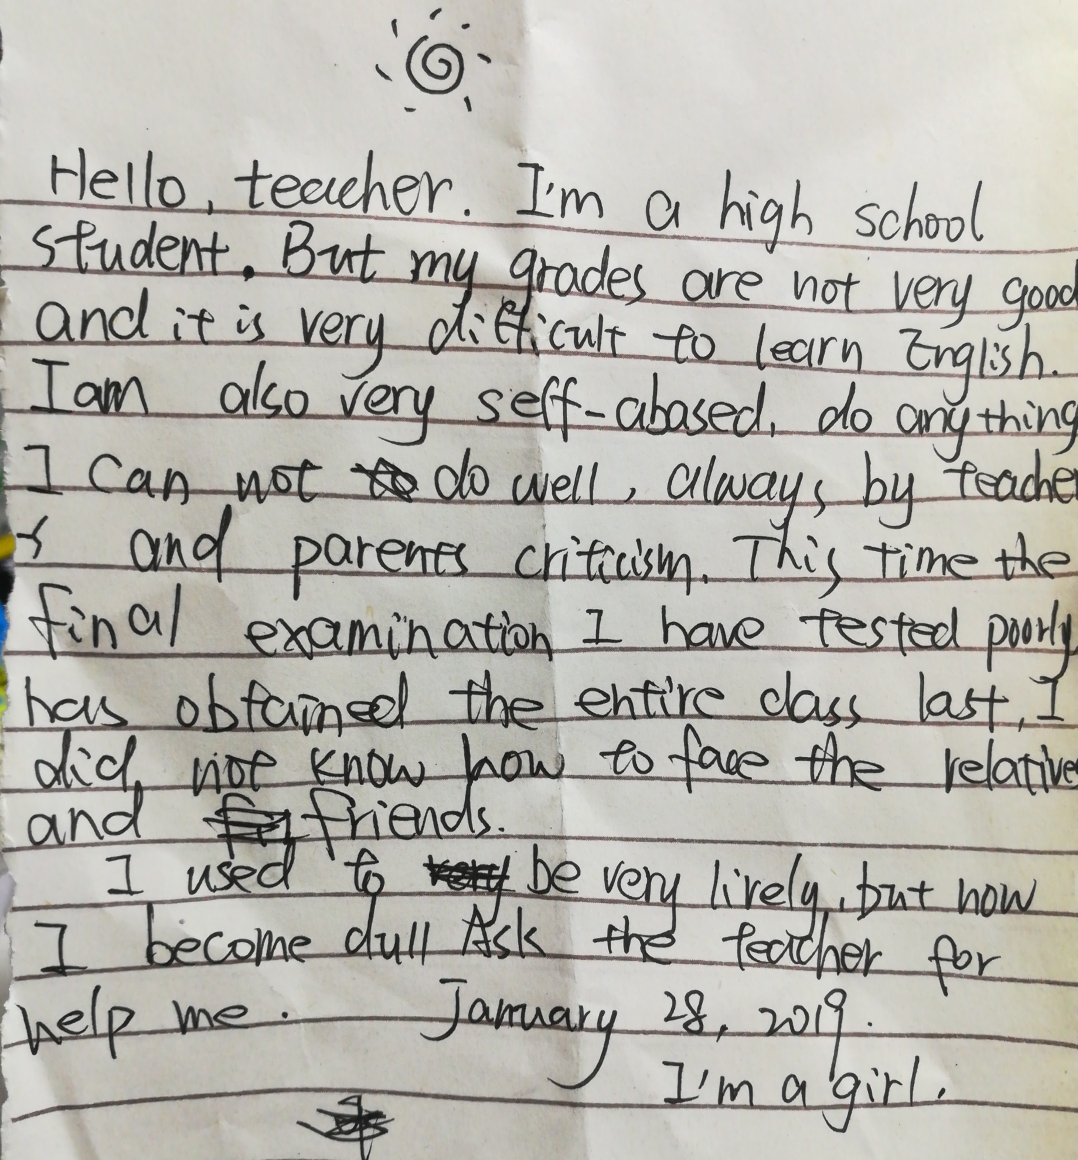 Hello, teacher. I'm a high school
student. But my grades are not very good
and it is very difficult to learn English.
I am also very self-abased, do anything
I can not do well, always by teache
r and parents criticism. This time the
final examination I have tested poorly
has obtained the entire class last, I
did not know how to face the relative
and friends.
I used to be very lively, but now
I become dull Ask the teacher for
help me. January 28, 2019.
I'm a girl.